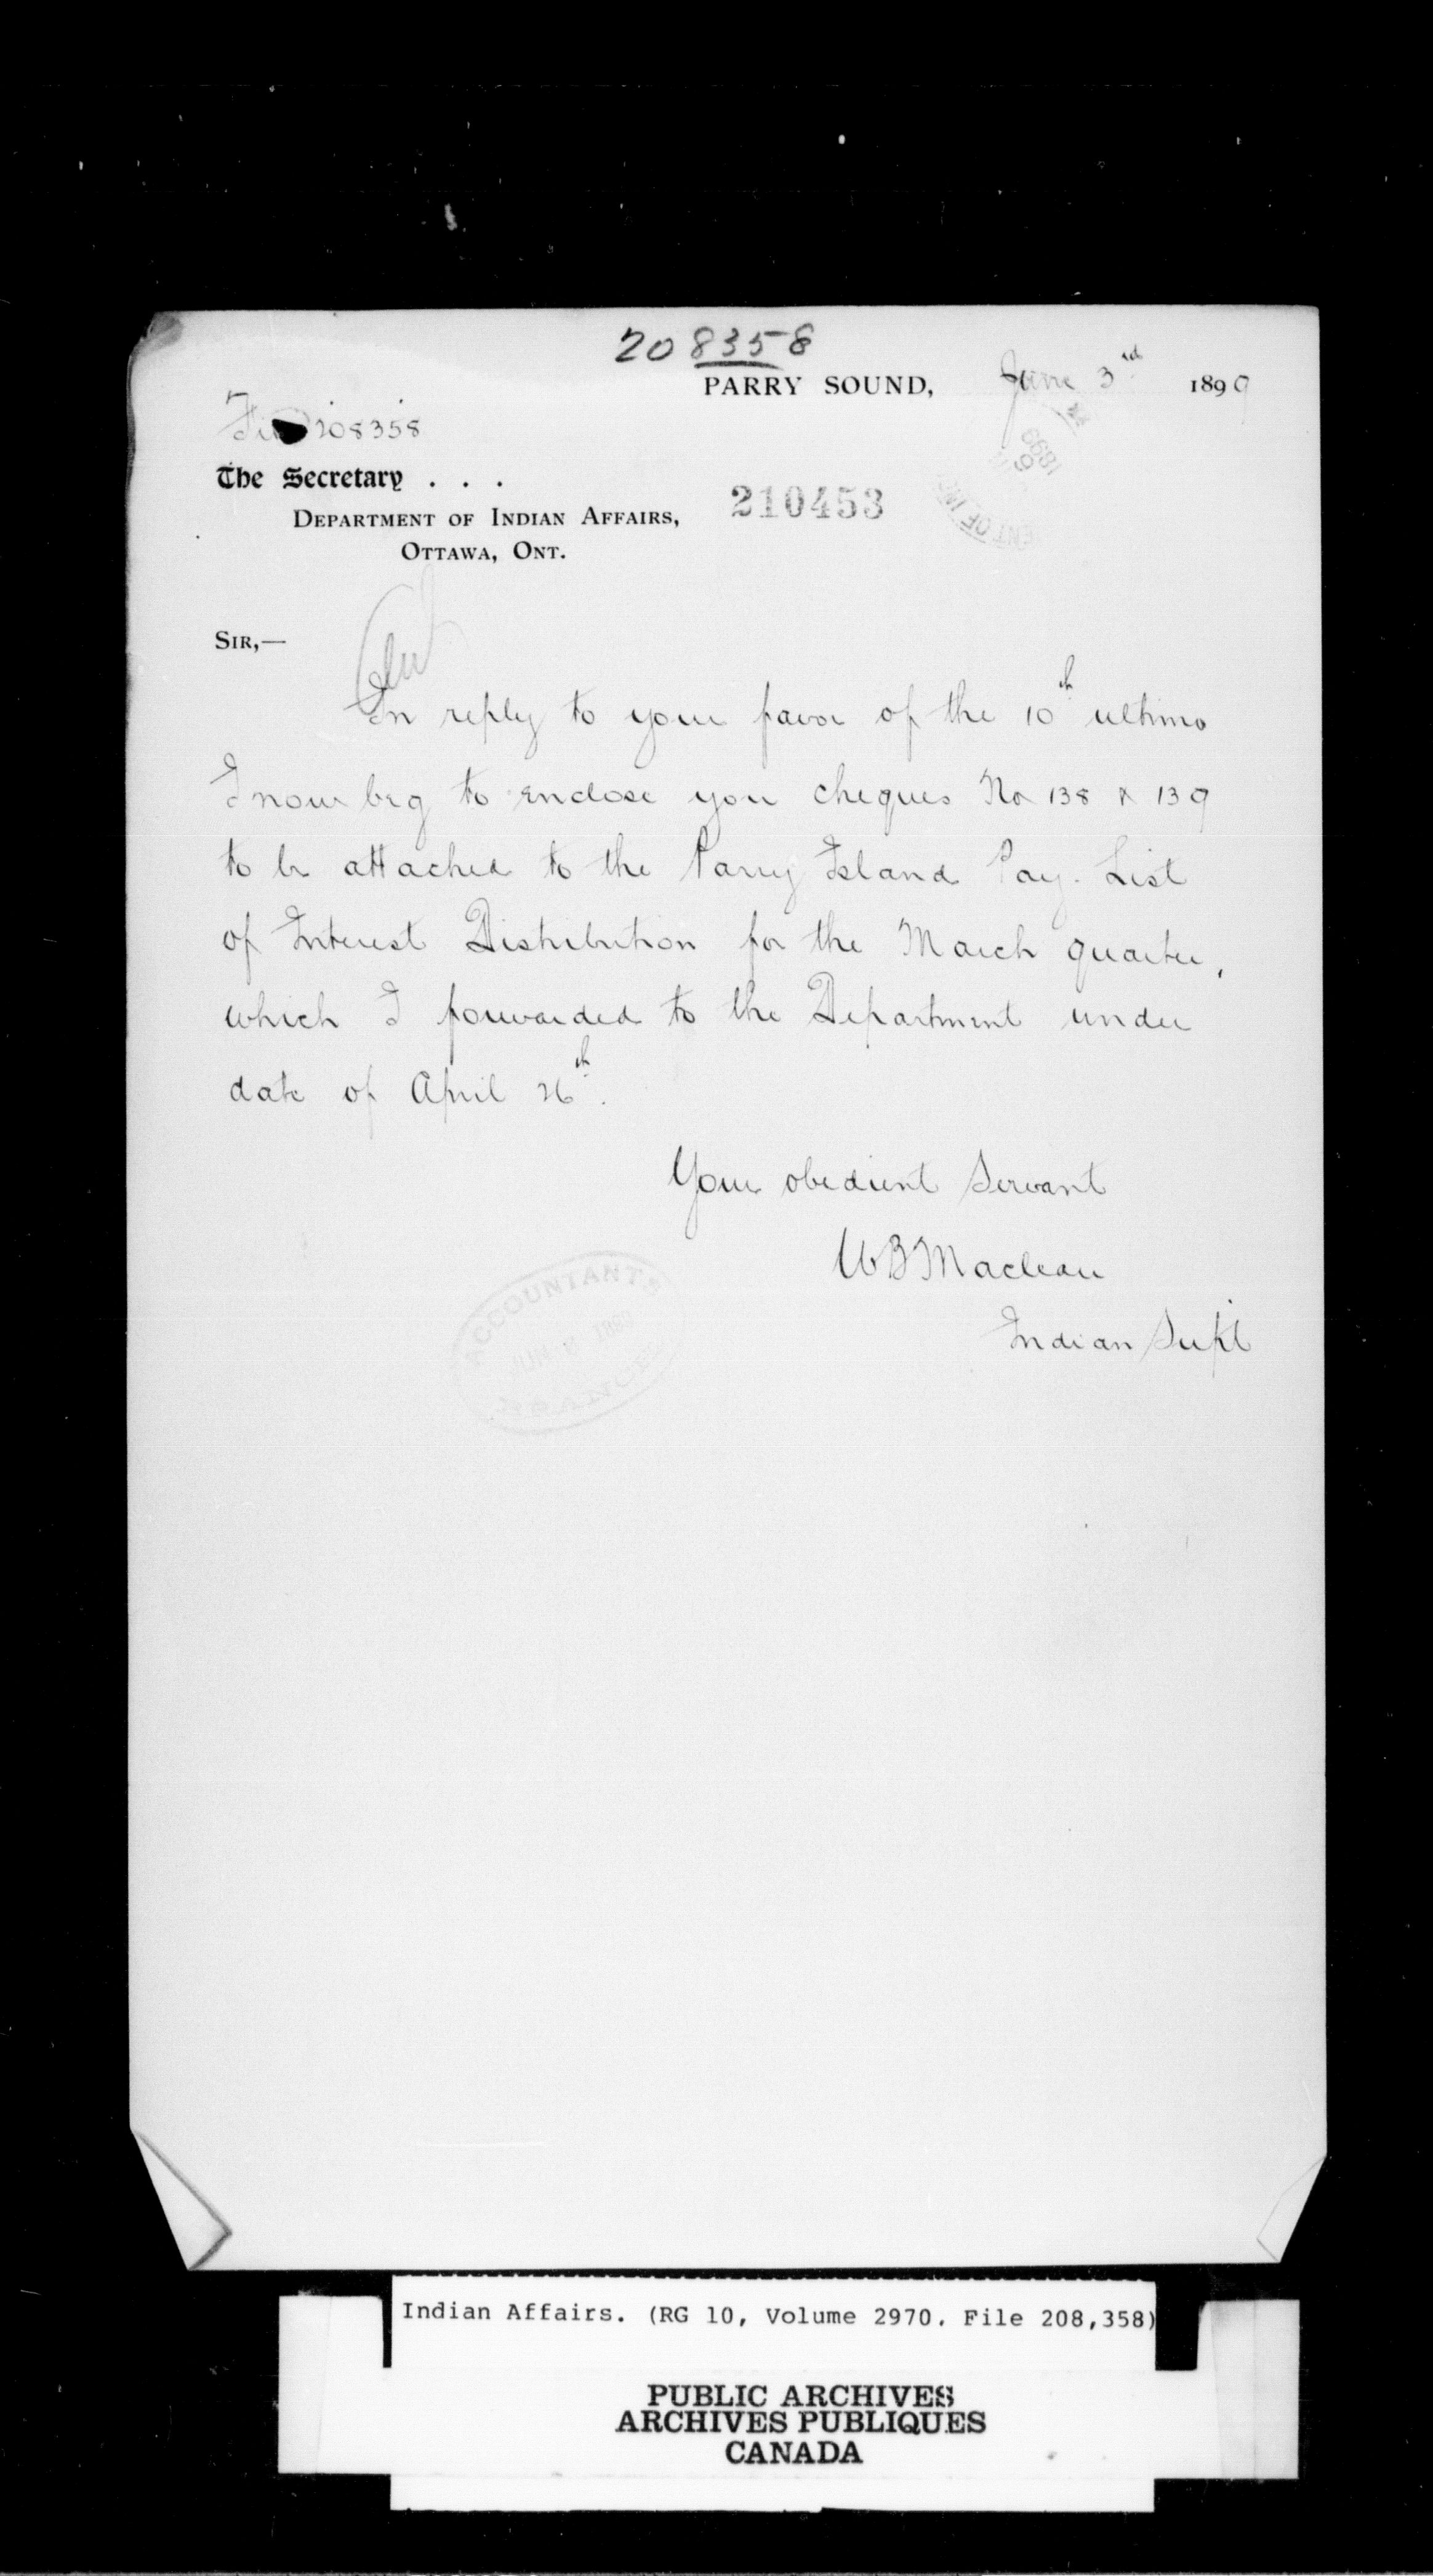 208358
PARRY SOUND, June 3rd 1899
208358
The Secretary . . .
DEPARTMENT OF INDIAN AFFAIRS,
210453
OTTAWA, ONT.
SIR,—
In reply to your favor of the 10th ultimo
I now beg to enclose you cheques No 138 & 139
to be attached to the Parry Island Pay. List
of Interest Distribution for the March quarter,
which I forwarded to the Department under
date of April 26th.
Your obedient Servant
WB Maclean
Indian Supt
ACCOUNTANT'S
BRANCH
Indian Affairs. (RG 10, Volume 2970, File 208,358)
PUBLIC ARCHIVES
ARCHIVES PUBLIQUES
CANADA